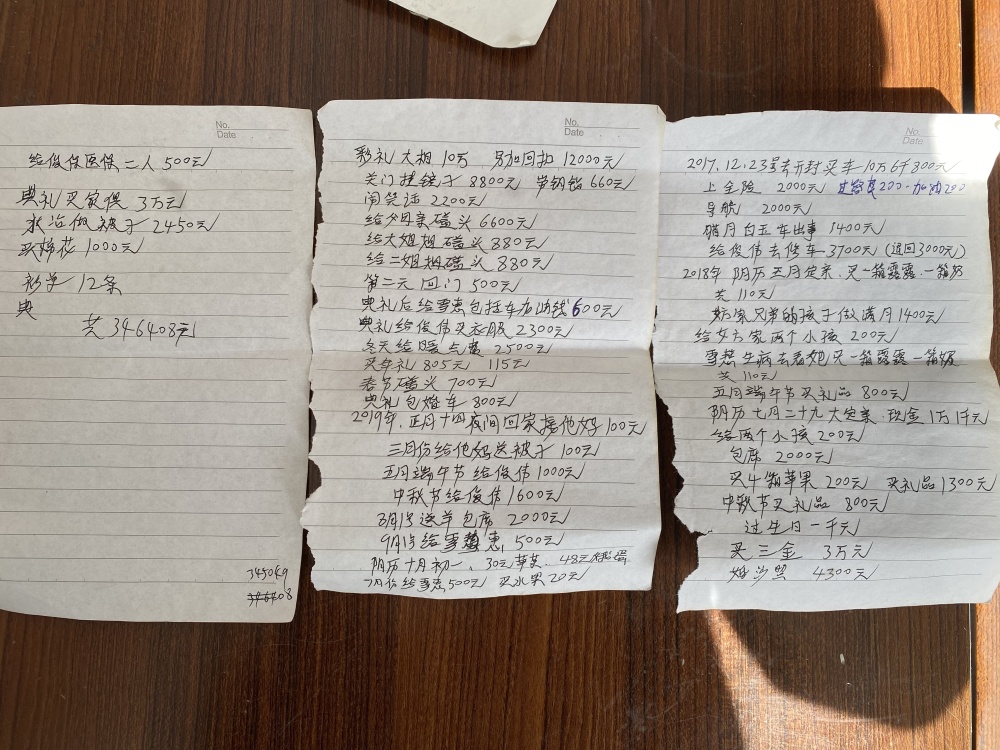 No.
Date
给俊保医保二人500元
典礼买家俱3万元
水冶做被子2450元
买棉花1000元
彩单12条
典
共346408元
345049
No.
Date
彩礼大相10万 另加回扣12000元
关门提镜子8800元 单钥匙660元
闹笑话2200元
给父母亲磕头6600元
给大姐姐磕头880元
给二姐姐磕头880元
第二天回门500元
典礼后给雪惠包括车加油钱600元
典礼给俊伟买衣服2300元
冬天给暖气费2500元
买年礼805元 115元
春节磕头700元
典礼包婚车800元
2019年.正月十四夜间回家接他妈100元
三月份给他妈送被子100元
五月端午节给俊伟1000元
中秋节给俊伟1600元
8月15送羊包席2000元
9月15给雪惠500元
阴历十月初一、30元苹果.48元
7月份给雪惠500元 买水果20元
No.
Date
2017.12.23号去开封买车10万6千800元
上全险2000元 过路费200.加油200
导航2000元
腊月白玉车出事1400元
给俊伟去修车3700元(返回3000元)
2018年阴历五月定亲.又一箱露露.一箱奶
共110元
奶家兄弟的孩子做满月1400元
给女方家两个小孩200元
雪惠生病去看她又一箱露露一箱奶
共110元
五月端午节买礼品800元
阴历七月二十九大定亲.现金1万1仟元
给两个小孩200元
包席2000元
买4箱苹果200元 买礼品1300元
中秋节买礼品800元
过生日一千元
买三金3万元
婚沙照4300元